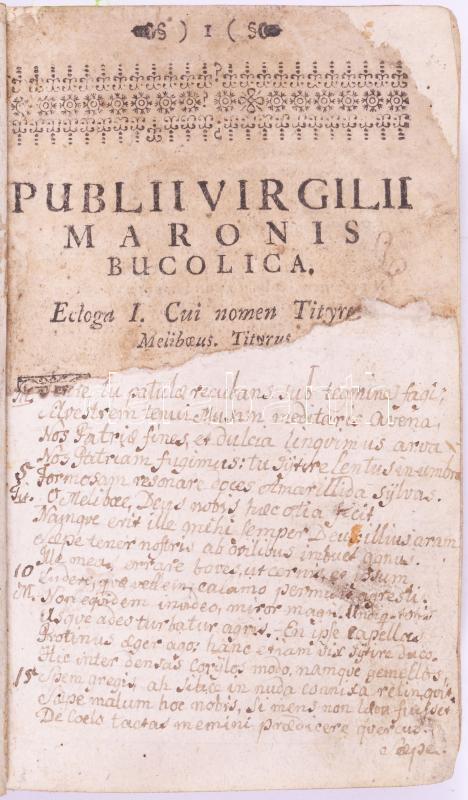 ) 1 (
PUBLII VIRGILII
MARONIS
BUCOLICA.
Ecloga I. Cui nomen Tityre
Melibœus. Tityrus
M. tu patulæ recubans sub tegmine fagi;
Silvestrem tenui Musam meditaris avena,
Nos Patriæ fines, et dulcia linqvimus arva
Nos Patriam fugimus: tu Tytire lentus in umbra
5 Formosam resonare doces Amarillida sylvas.
Tit. O Melibæe, Deus nobis hæc otia fecit
Namqve erit ille mihi semper Deus, illius aram
Sæpe tener nostris ab ovilibus imbuet agnus.
Ille meas errare boves, ut cernis, et ipsum
10 Ludere, qvæ vellem, calamo permisit agresti.
M. Non eqvidem invideo, miror magis, undiq totis
Usqve adeo turbatur agris. En ipse capellas
Protinus æger ago; hanc etiam vix Tytire duco.
Hic inter densas corylos modo, namqve gemellos,
15 Spem gregis, ah silice in nuda connixa reliqvit.
Sæpe malum hoc nobis, si mens non læva fuisset
De Coelo tactas memini prædicere qvercus.
Sæpe.